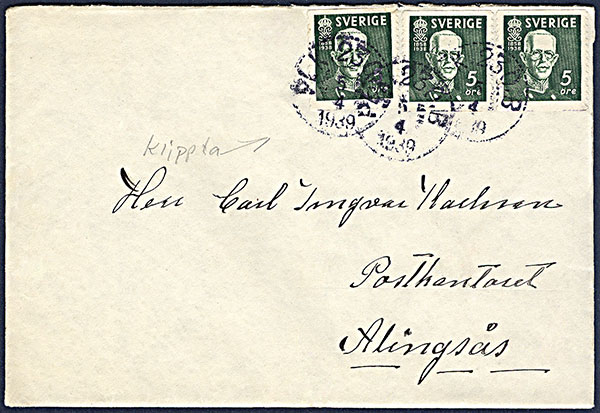 SVERIGE SVERIGE SVERIGE
1858 1938 1858 1938 1858 1938
5 öre 5 öre 5 öre
4
1939
4
1939
Klippta
Herr Carl Ingvar
Postkontoret
Alingsås